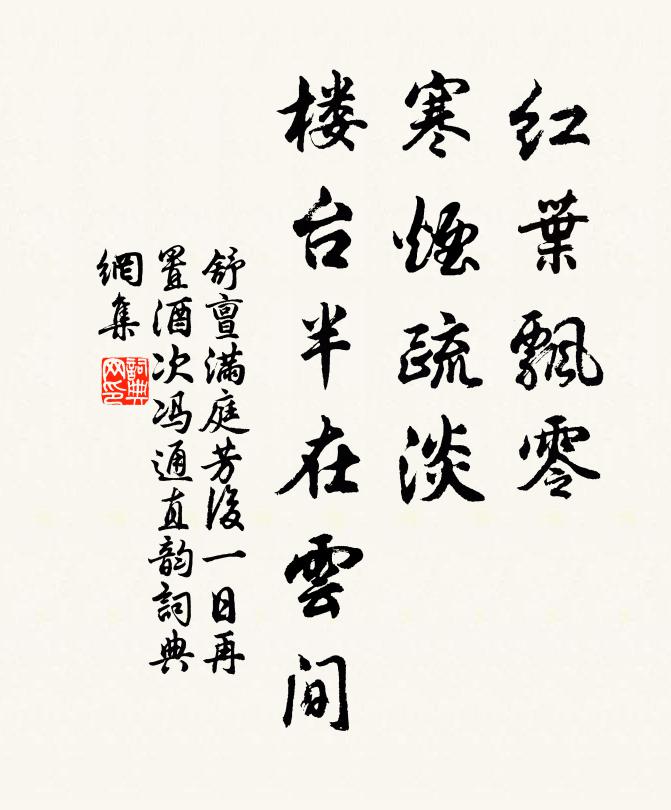 红葉飄零
寒煙疏淡
楼台半在雲间
舒亶满庭芳後一日再
置酒次冯通直韵詞典
網集
詞典
网印